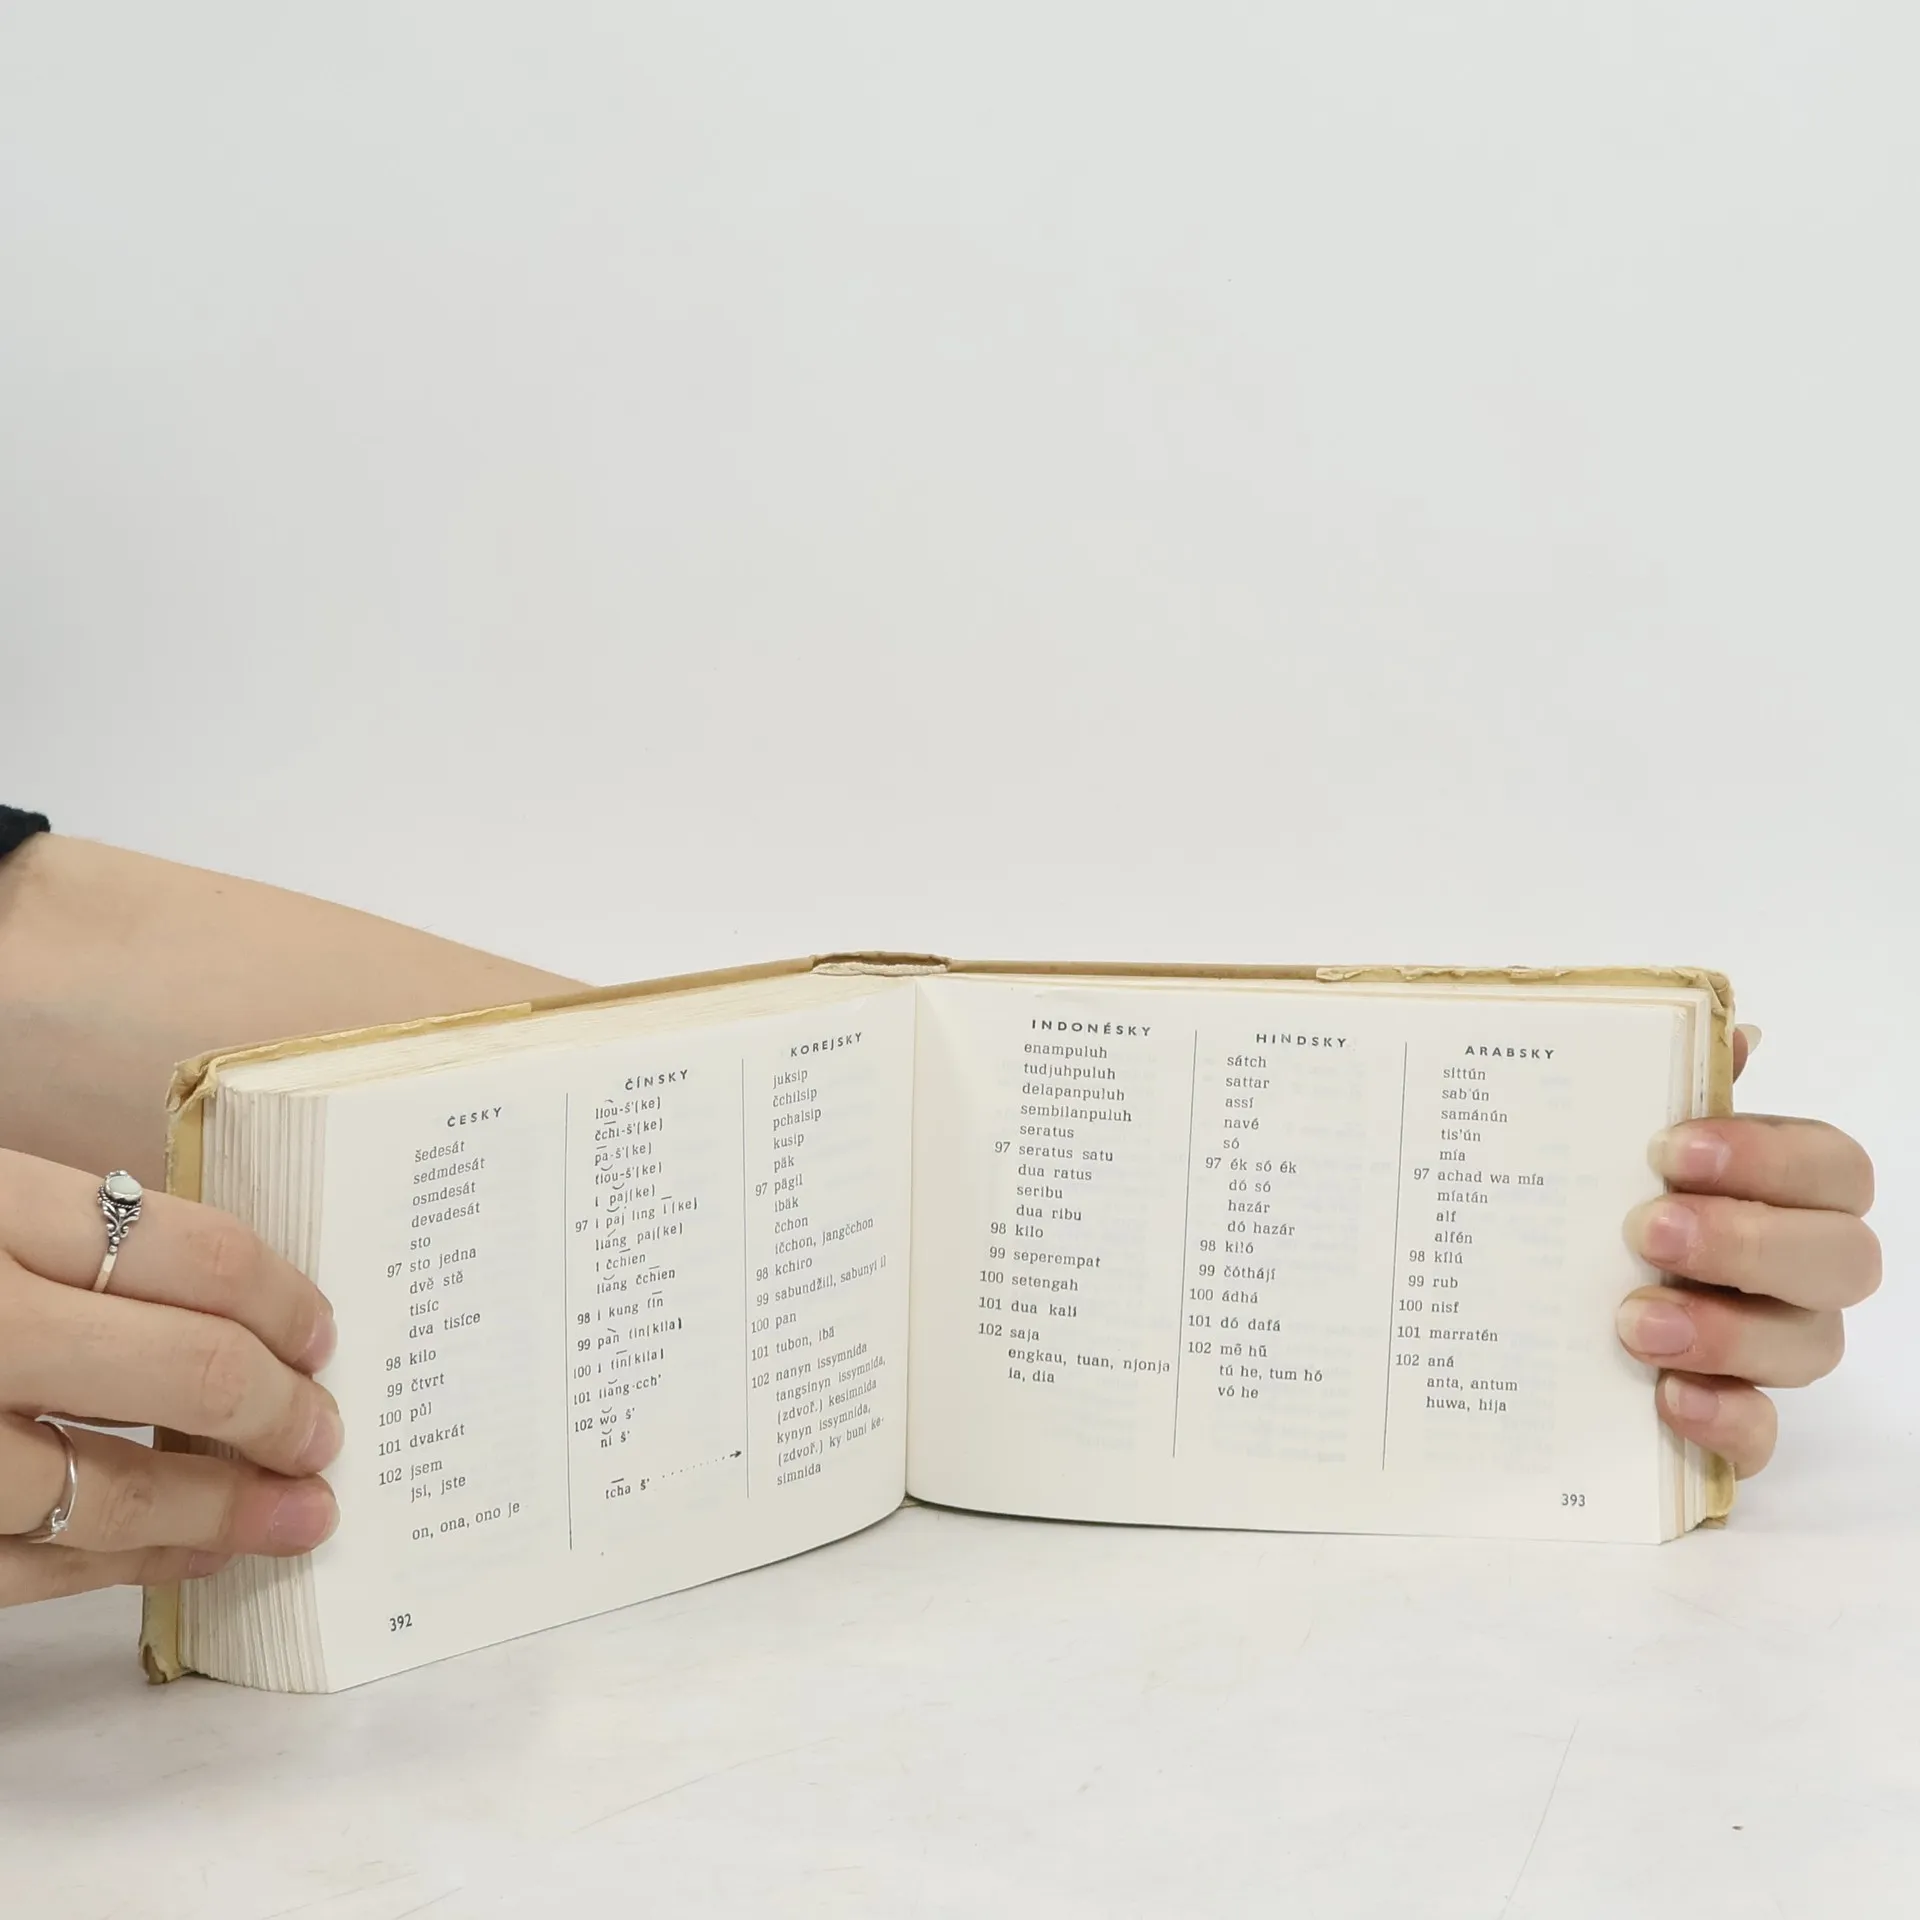 ČESKY
šedesát
sedmdesát
osmdesát
devadesát
sto
97 sto jedna
dvě stě
tisíc
dva tisíce
98 kilo
99 čtvrt
100 půl
101 dvakrát
102 jsem
jsi, jste
on, ona, ono je
392
ČÍNSKY
liòu-š'(ke)
čchī-š'(ke)
pā-š'(ke)
ťiǒu-š'(ke)
i pǎj(ke)
97 i pǎj ling ī(ke)
liǎng paj(ke)
i čchīen
liǎng čchīen
98 i kung ťīn
99 pàn ťīn(kila)
100 i ťīn(kila)
101 liǎng-cch'
102 wǒ š'
nǐ š'
tchā š'
KOREJSKY
juksip
čchilsip
pchalsip
kusip
päk
97 pägil
ibäk
čchon
ičchon, jangčchon
98 kchiro
99 sabundžiil, sabunyi il
100 pan
101 tubon, ibä
102 nanyn issymnida
tangsinyn issymnida,
(zdvoř.) kesimnida
kynyn issymnida,
(zdvoř.) ky buni ke-
simnida
INDONÉSKY
enampuluh
tudjuhpuluh
delapanpuluh
sembilanpuluh
seratus
97 seratus satu
dua ratus
seribu
dua ribu
98 kilo
99 seperempat
100 setengah
101 dua kali
102 saja
engkau, tuan, njonja
ia, dia
HINDSKY
sátch
sattar
assí
navé
só
97 ék só ék
dó só
hazár
dó hazár
98 kiló
99 čóthájí
100 ádhá
101 dó dafá
102 mẽ hũ
tú he, tum hó
vó he
ARABSKY
sittún
sab'ún
samánún
tis'ún
mía
97 achad wa mía
míatán
alf
alfén
98 kílú
99 rub
100 nisf
101 marratén
102 aná
anta, antum
huwa, hija
393